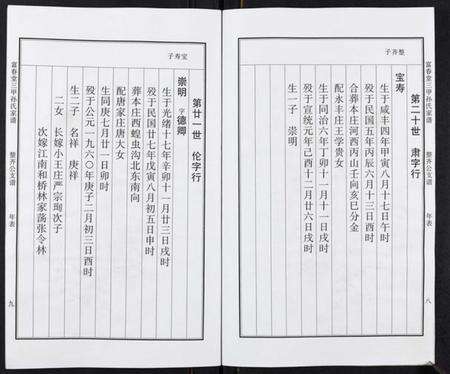 富春堂三甲孙氏家谱
整齐公支谱
年表
八
整齐子
第二十世 肃字行
宝寿
生于咸丰四年甲寅八月十七日午时
殁于民国五年丙辰六月十三日酉时
合葬本庄河西丙山壬向亥巳分金
配永丰庄王学贵女
生于同治六年丁卯十一月十一日戌时
殁于宣统元年己酉十二月廿六日戌时
生一子 崇明
宝寿子
第廿一世 伦字行
崇明 字德卿
生于光绪十七年辛卯十一月廿三日戌时
殁于民国廿七年戊寅八月初五日申时
葬本庄西蝗虫沟北东南向
配唐家庄唐大女
生同庚七月廿一日卯时
殁于公元一九六〇年庚子二月初三日酉时
生二子 名祥 庚祥
二女 长嫁小王庄严宗珣次子
次嫁江南和桥林家荡张令林
富春堂三甲孙氏家谱
整齐公支谱
年表
九